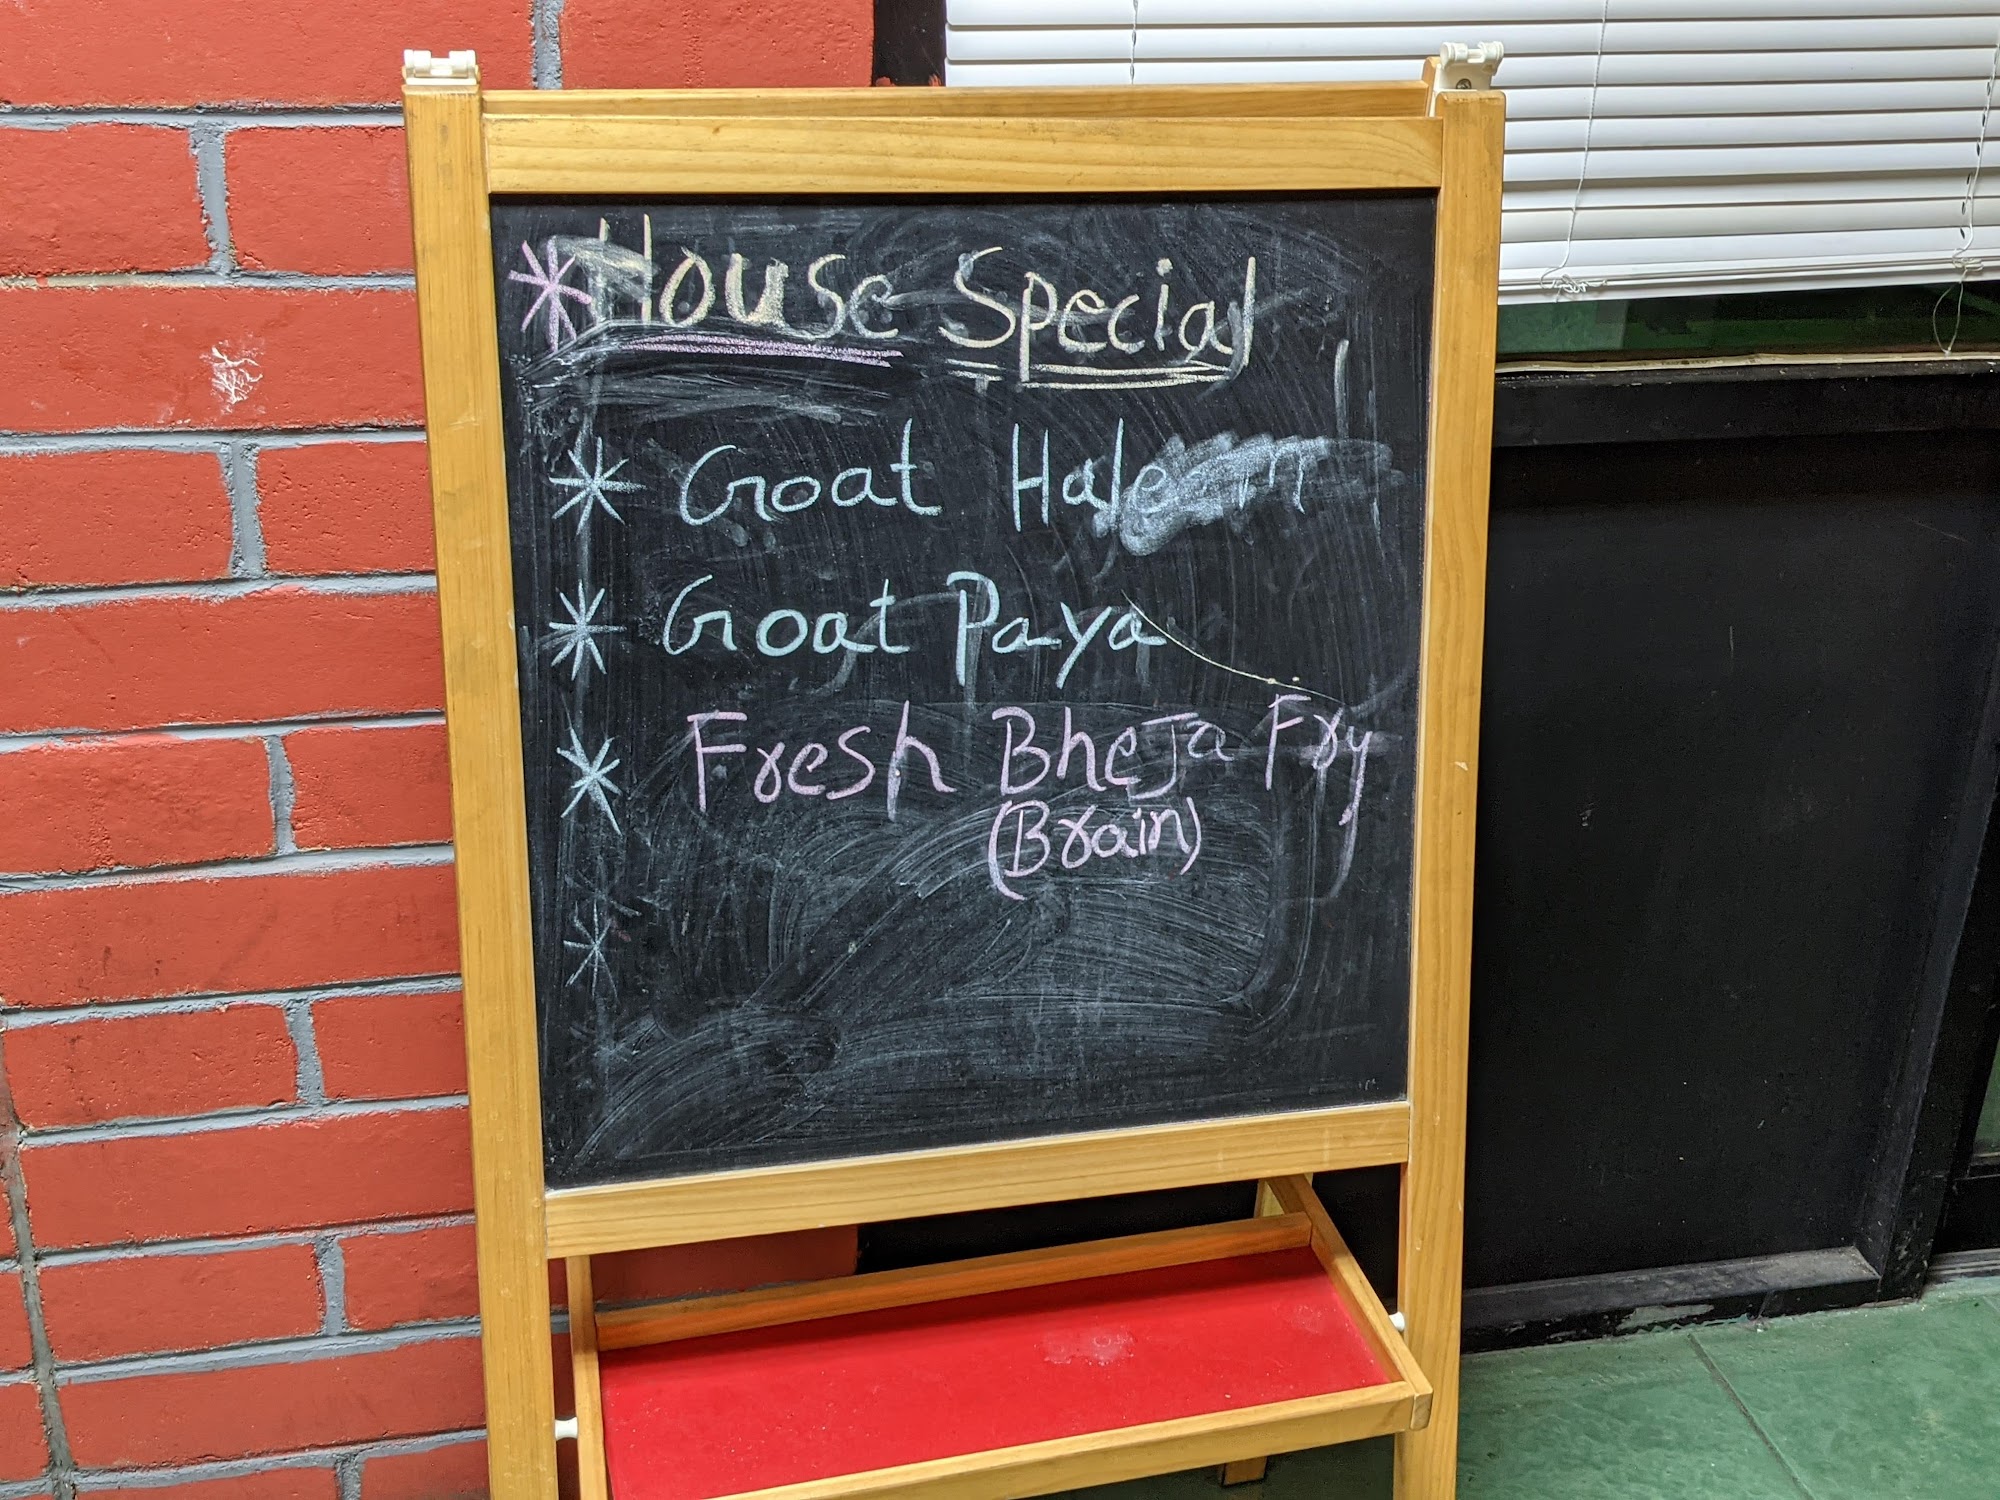 * House Special
* Goat Haleem
* Goat Paya
* Fresh Bheja Fry
(Brain)
*